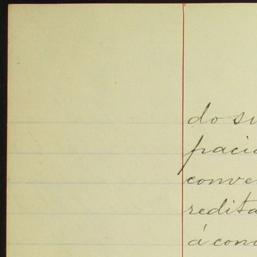 do su
pacie
conve
redita
á cons